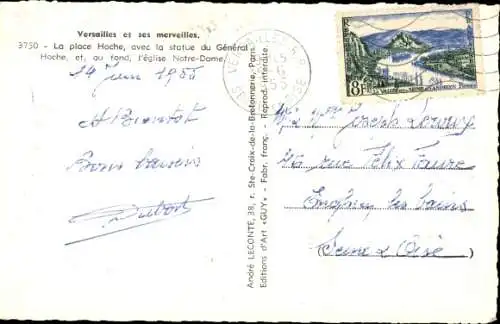 Versailles et ses merveilles.
3750 - La place Hoche, avec la statue du Général
Hoche, et, au fond, l'église Notre-Dame.
14 Juin 1955
A Bientôt
Bons baisers
Dubost
André LECONTE, 38, r. Ste-Croix-de-la-Bretonnerie, Paris
Editions d'Art «GUY» - Fabr. franç. - Reprod. interdite.
VERSAILLES R.P.
8F
Joseph
26 rue Félix Faure
Enghien les bains
Seine & Oise